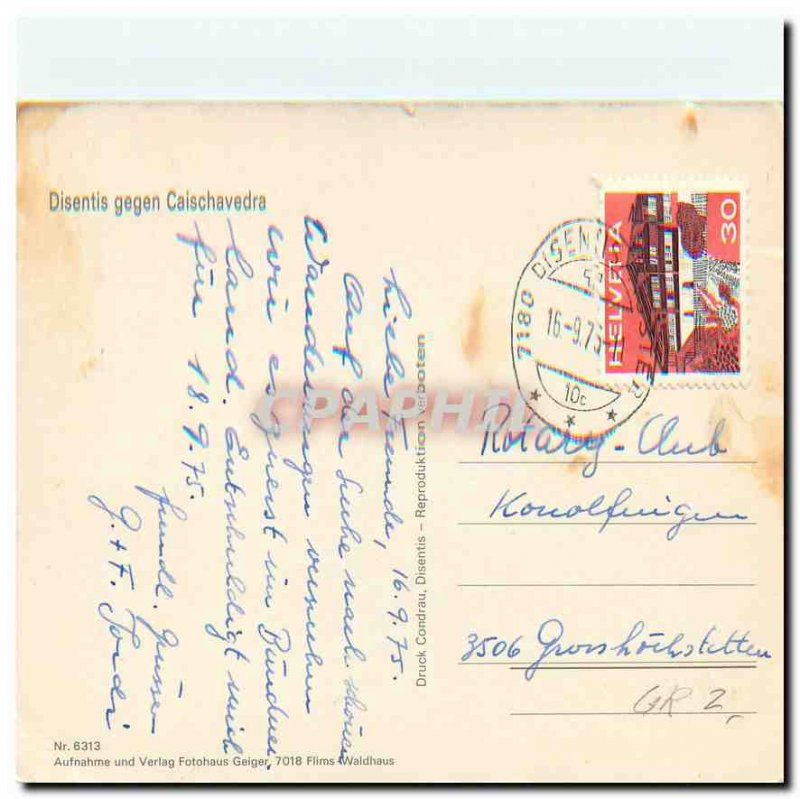 Disentis gegen Caischavedra
HELVETIA
30
7180 DISENTIS
16-9.75
10c
Liebe Freunde, 16.9.75.
Auf der Suche nach schönen
Wanderungen versuchen
wir es zuerst im Bündner-
land. Entschuldigt mich
für 18.9.75.
freundl. Grüsse
G. + F.
Druck Condrau, Disentis – Reproduktion verboten
Rotary-Club
Konolfingen
3506 Grosshöchstetten
GR 2,
CPAPHIL
Nr. 6313
Aufnahme und Verlag Fotohaus Geiger, 7018 Flims-Waldhaus